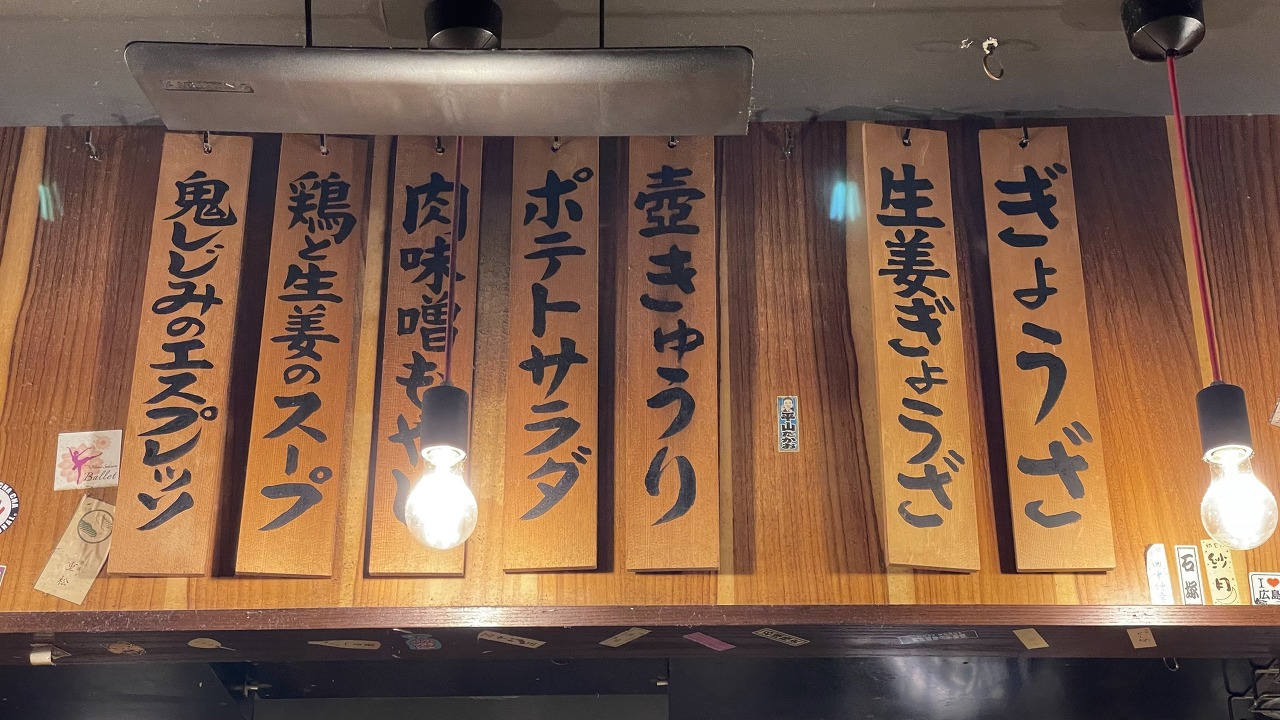 ぎょうざ
生姜ぎょうざ
壺きゅうり
ポテトサラダ
肉味噌もやし
鶏と生姜のスープ
鬼しじみのエスプレッソ
平山たかお
Ballet
重松
石塚
I ❤ 広島